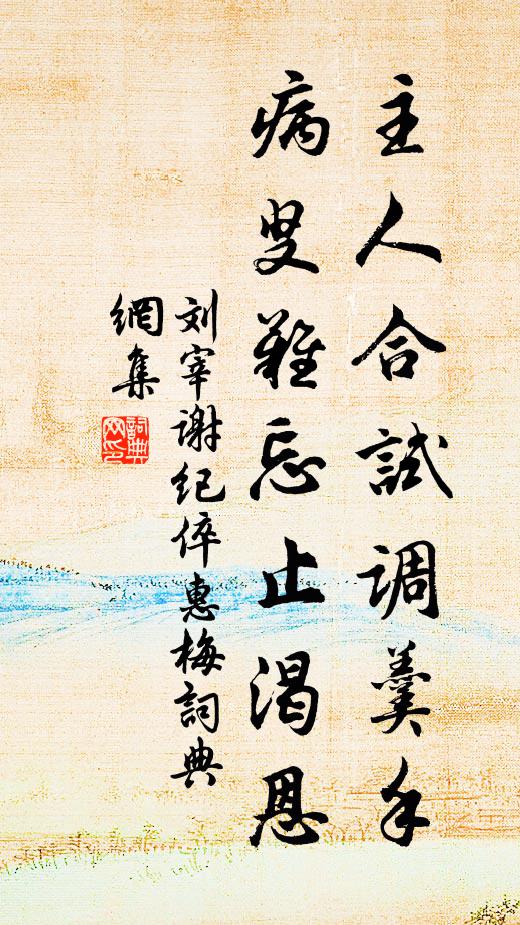 主人合試调羹手
病叟難忘止渴恩
刘宰谢纪倅惠梅詞典
網集
詞典
网印